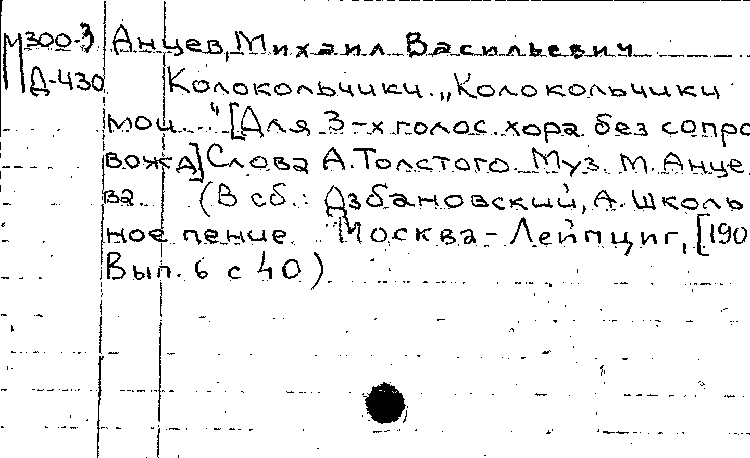 М300-3 Анцев, Михаил Васильевич
Д-430 Колокольчики. „Колокольчики
мои..." [Для 3-х голос. хора без сопро
вожд] Слова А. Толстого. Муз. М. Анце
ва. (В сб.: Дзбановский, А. Школь
ное пение. Москва - Лейпциг, [190
Вып. 6 с 40)